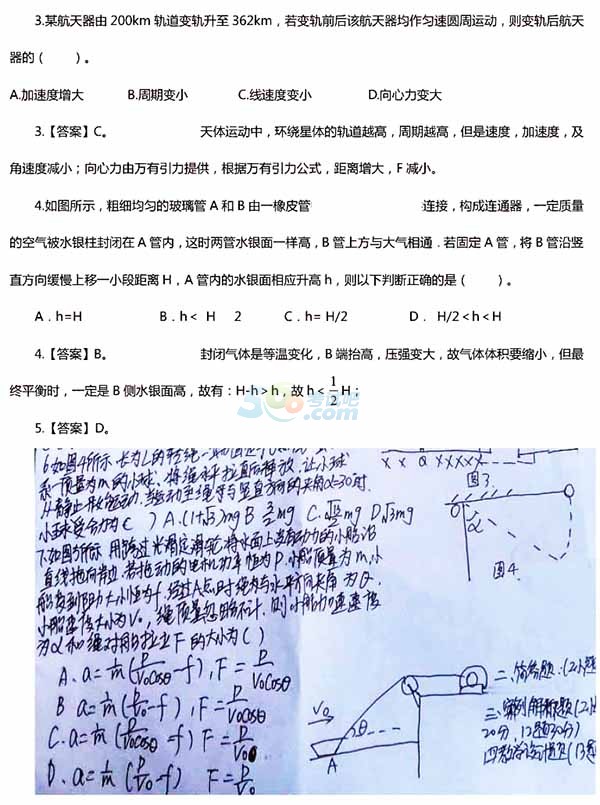 3.某航天器由 200km 轨道变轨升至 362km，若变轨前后该航天器均作匀速圆周运动，则变轨后航天
器的（　　）。
A.加速度增大　　B.周期变小　　C.线速度变小　　D.向心力变大
3.【答案】C。　　天体运动中，环绕星体的轨道越高，周期越高，但是速度，加速度，及
角速度减小；向心力由万有引力提供，根据万有引力公式，距离增大，F 减小。
4.如图所示，粗细均匀的玻璃管 A 和 B 由一橡皮管　　连接，构成连通器，一定质量
的空气被水银柱封闭在 A 管内，这时两管水银面一样高，B 管上方与大气相通．若固定 A 管，将 B 管沿竖
直方向缓慢上移一小段距离 H，A 管内的水银面相应升高 h，则以下判断正确的是（　　）。
A．h=H　　B．h< H 2　　C．h= H/2　　D． H/2<h<H
4.【答案】B。　　封闭气体是等温变化，B 端抬高，压强变大，故气体体积要缩小，但最
终平衡时，一定是 B 侧水银面高，故有：H-h>h，故 h<1/2 H；
5.【答案】D。
6.如图4所示，长为L的轻绳一
系一质量为m的小球，将绳水平拉直后释放，让小球
从静止开始运动，当运动至绳子与竖直方向的夹角α=30°时
小球受合力为( ) A.(1+√3)mg B 3/2mg C. mg D √3mg
7.如图5所示，用跨过光滑定滑轮将水面上失去动力的小船沿
直线拖向岸边，若拖动的电机功率恒为P，小船质量为m，小
船受到阻力大小恒为f，经过A点时绳与水平方向夹角为θ，
小船速度大小为V₀，绳质量忽略不计，则小船加速度
为α和绳对船的拉力F的大小为( )
A. a=1/m(P/V₀cosθ-f)，F=P/V₀cosθ
B a=1/m(P/V₀-f)，F=P/V₀cosθ
C. a=1/m(P/V₀cosθ-f) F=P/V₀
D. a=1/m(P/V₀-f) F=P/V₀
X X Q XXXX
图3.
O
α
图4.
V₀
θ
A
二、简答题.(2小题
三、案例解析题(2小
20分，12题30分)
四教学设计题(13题